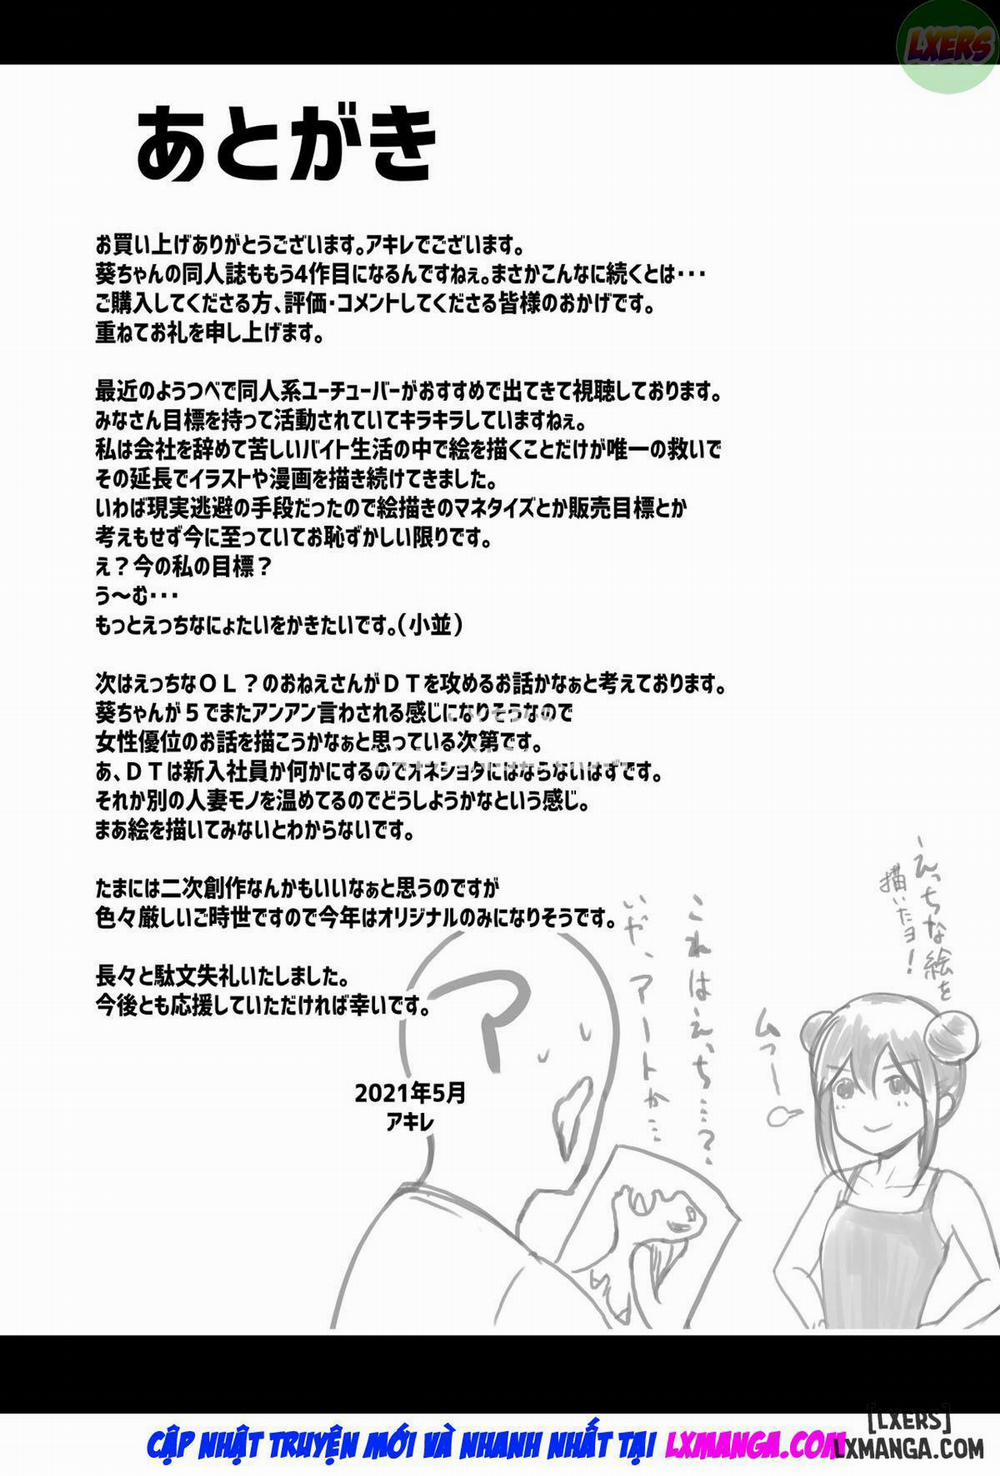 LXERS
あとがき
お買い上げありがとうございます。アキレでございます。
葵ちゃんの同人誌ももう4作目になるんですねぇ。まさかこんなに続くとは・・・
ご購入してくださる方、評価・コメントしてくださる皆様のおかげです。
重ねてお礼を申し上げます。
最近のようつべで同人系ユーチューバーがおすすめで出てきて視聴しております。
みなさん目標を持って活動されていてキラキラしていますねぇ。
私は会社を辞めて苦しいバイト生活の中で絵を描くことだけが唯一の救いで
その延長でイラストや漫画を描き続けてきました。
いわば現実逃避の手段だったので絵描きのマネタイズとか販売目標とか
考えもせず今に至っていてお恥ずかしい限りです。
え？今の私の目標？
う～む・・・
もっとえっちなにょたいをかきたいです。（小並）
次はえっちなＯＬ？のおねえさんがＤＴを攻めるお話かなぁと考えております。
葵ちゃんが５でまたアンアン言わされる感じになりそうなので
女性優位のお話を描こうかなぁと思っている次第です。
あ、ＤＴは新入社員か何かにするのでオネショタにはならないはずです。
それか別の人妻モノを温めてるのでどうしようかなという感じ。
まあ絵を描いてみないとわからないです。
たまには二次創作なんかもいいなぁと思うのですが
色々厳しいご時世ですので今年はオリジナルのみになりそうです。
長々と駄文失礼いたしました。
今後とも応援していただければ幸いです。
2021年5月
アキレ
えっちな絵を
描いたヨ！
ムフー
これはえっち…？
いや、アートか…
[LXERS]
LXMANGA.COM
CẬP NHẬT TRUYỆN MỚI VÀ NHANH NHẤT TẠI LXMANGA.COM